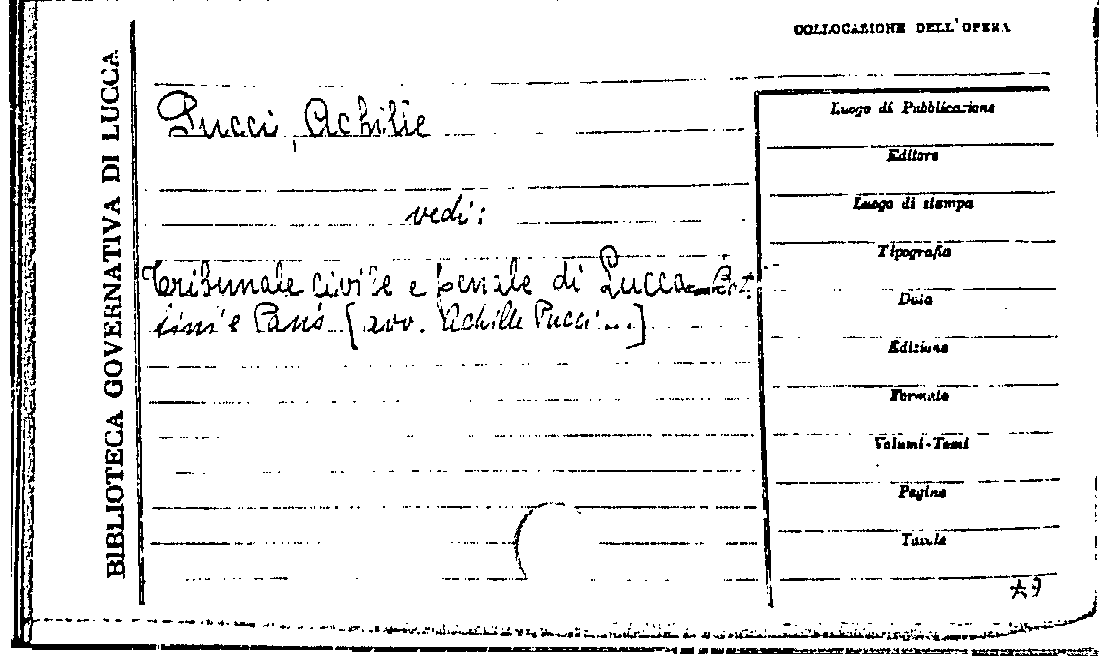 COLLOCAZIONE DELL'OPERA
BIBLIOTECA GOVERNATIVA DI LUCCA
Pucci, Achille
vedi:
Tribunale civile e penale di Lucca - Bot
tini e Paris [avv. Achille Pucci ...]
Luogo di Pubblicazione
Editore
Luogo di stampa
Tipografia
Data
Edizione
Formato
Volumi-Tomi
Pagine
Tavole